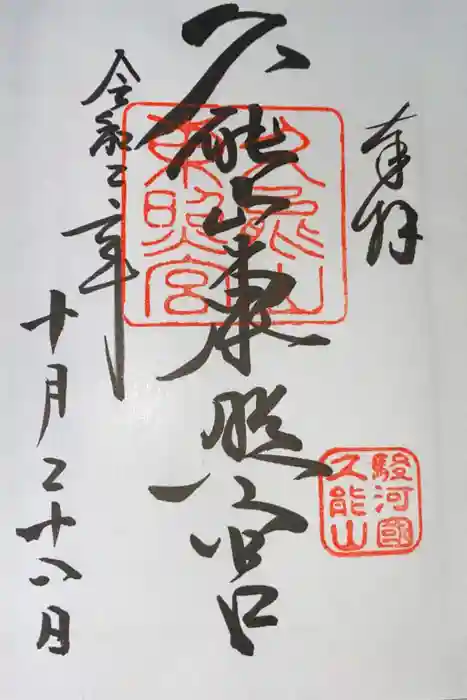 奉拝
駿河國
久能山
久能山東照宮
久能山
東照宮
令和二年
十月二十八日